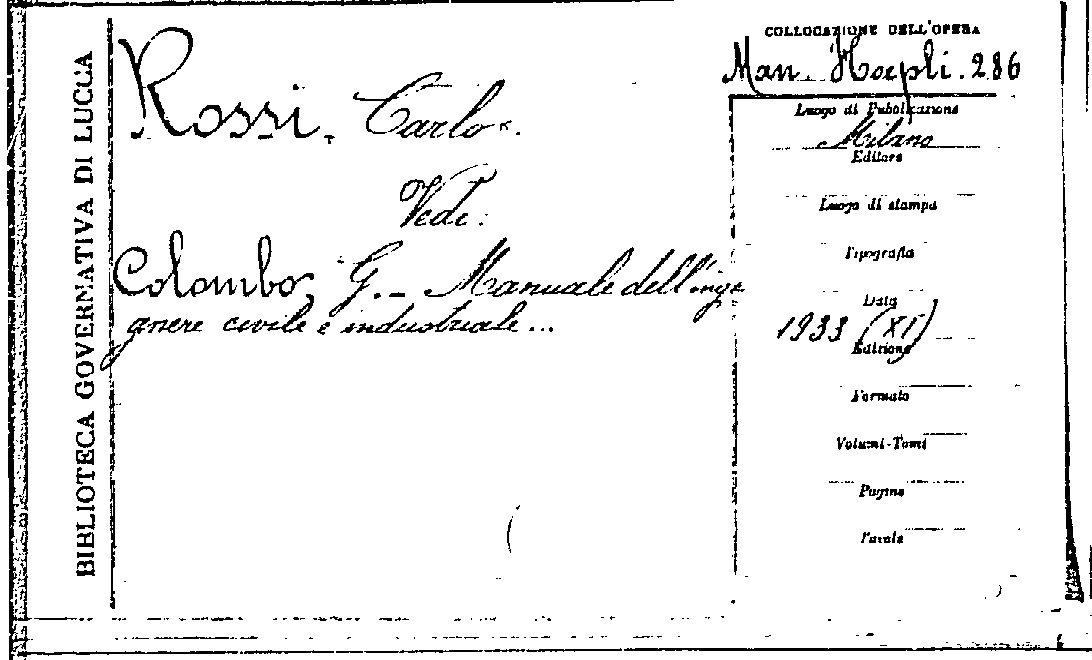 BIBLIOTECA GOVERNATIVA DI LUCCA
Rossi, Carlo.
Vedi:
Colombo, G. - Manuale dell'inge
gnere civile e industriale...
COLLOCAZIONE DELL'OPERA
Man. Hoepli. 286
Luogo di Pubblicazione
Milano
Editore
Luogo di stampa
Tipografia
Data
1933 (XI)
Edizione
Formato
Volumi-Tomi
Pagine
Tavole